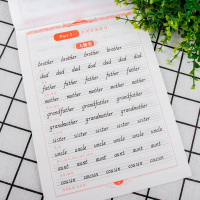 Part 1
人物类
brother brother brother brother
dad dad dad dad dad
father father father father
mother mother mother mother
grandfather grandfather grandfather
grandmother grandmother grandmother
sister sister sister sister
uncle uncle uncle uncle
aunt aunt aunt aunt
cousin cousin cousin cousin